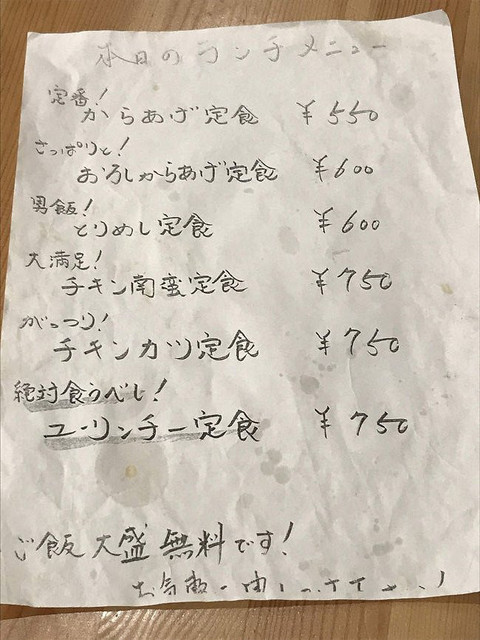 本日のランチメニュー
定番!
からあげ定食 ¥550
さっぱりと!
おろしからあげ定食 ¥600
男飯!
とりめし定食 ¥600
大満足!
チキン南蛮定食 ¥750
がっつり!
チキンカツ定食 ¥750
絶対食うべし!
ユーリンチー定食 ¥750
ご飯大盛無料です!
お気軽